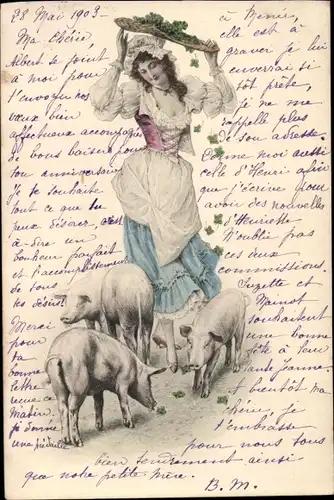 28 Mai 1903
Ma Chérie,
Albert se joint
à moi pour
t'envoyer nos
vœux bien
affectueux accompagnés
de bons baisers pour
ton anniversaire
Je te souhaite
tout ce que tu
peux désirer, c'est
à dire un
bonheur parfait
et l'accomplissement
de tous
tes désirs!
Merci
pour
ta
bonne
lettre
reçue ce
matin.
Je donne
une
à
elle est à
graver je lui
enverrai si
tôt prête,
je ne me
rappelle plus
de son adresse
Comme moi aussi
celle d'Henri afin
que j'écrive pour
avoir des nouvelles
d'Henriette
N'oublie pas
ces deux
commissions.
Suzette et
souhaitent
une bonne
fête à leur
tante Jeanne.
A bientôt ma
chérie, je
t'embrasse
pour nous tous
bien tendrement ainsi
que notre petite mère.
B. M.